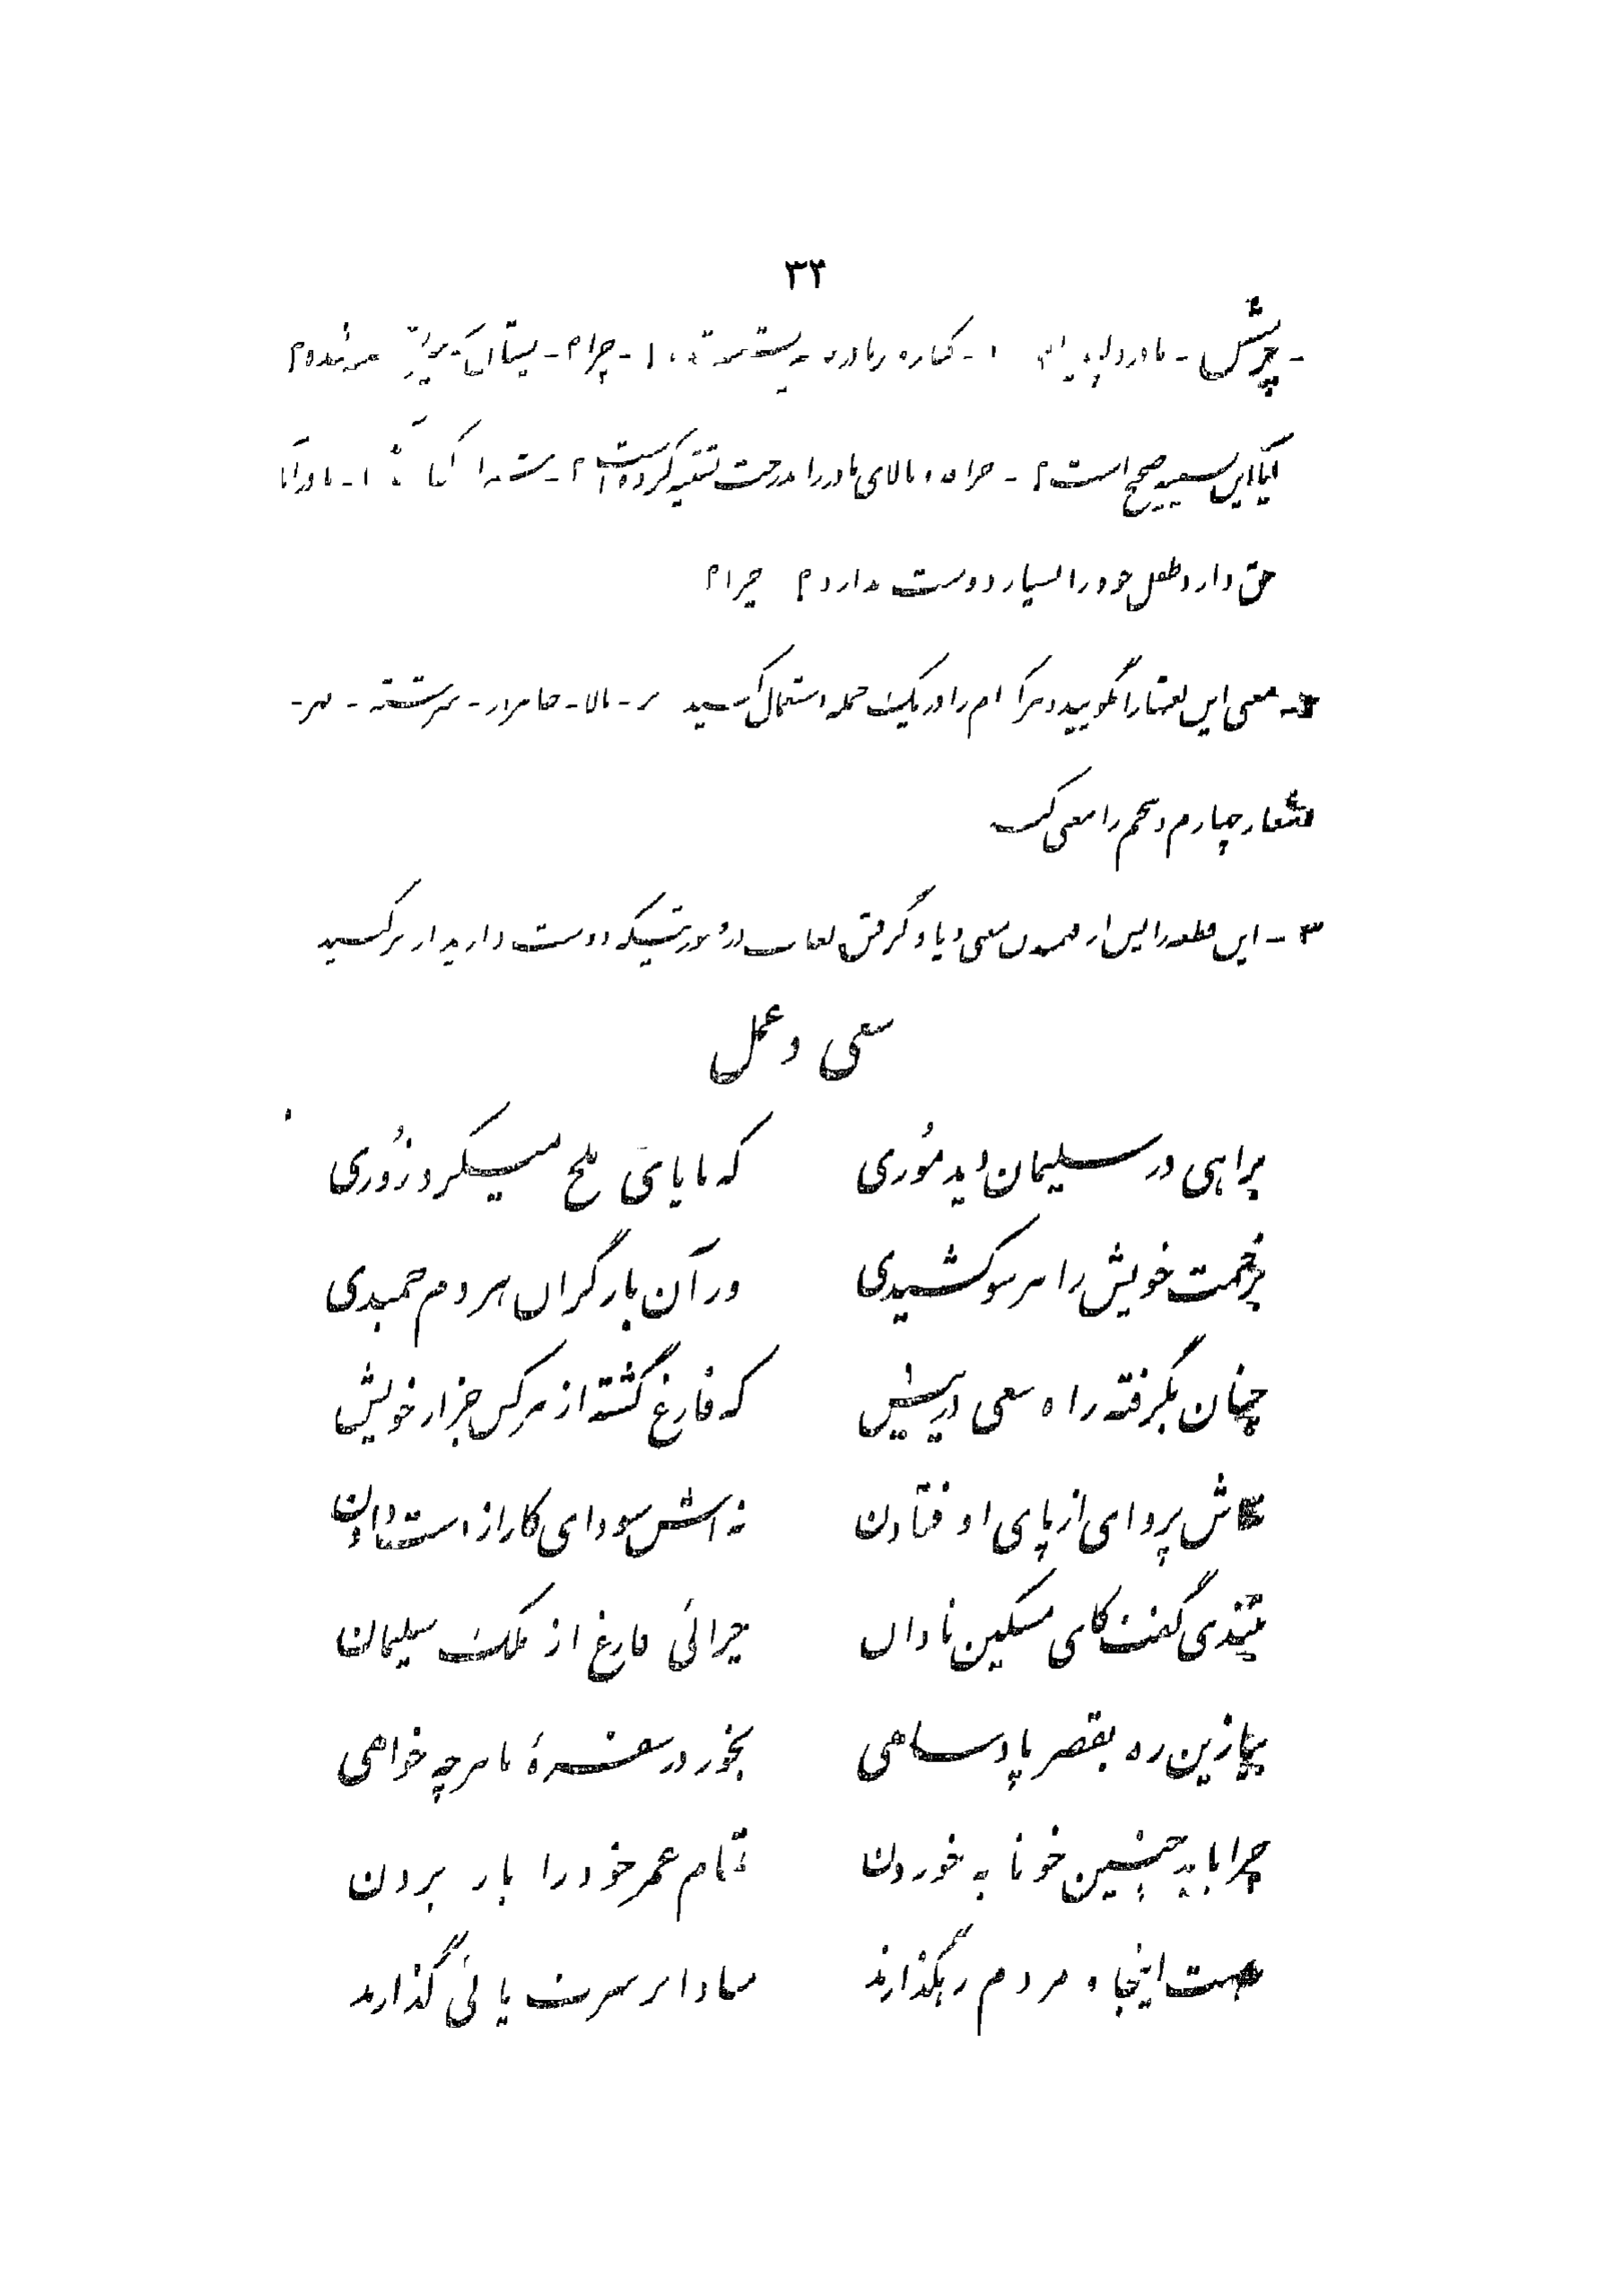 ۳۳
پرسش -
آیا این صحیح است؟ - و بالای مادر را بدرخت تشبیه کرده است؟ -
حق دارد طفل خود را بسیار دوست بدارد؟ چرا؟
معنی این لغتها را بگویید و هر کدام را در یک جمله استعمال کنید - بالا - - سرشته - مهر -
اشعار چهارم و پنجم را معنی کنید
۳ - این قطعه را پس از فهمیدن معنی و یاد گرفتن لغات در صورتیکه دوست دارید از بر کنید
سعی و عمل
براهی در سلیمان دید موری که با پای ملخ میکرد زوری
بزحمت خویش را هر سو کشیدی وز آن بار گران هر دم خمیدی
چنان بگرفته راه سعی در پیش که فارغ گشته از هر کس جز از خویش
نه‌اش پروای از پای اوفتادن نه‌اش سودای کار از دست دادن
بتندی گفت کای مسکین نادان چرائی فارغ از ملک سلیمان
بیا زین ره بقصر پادشاهی بخور در سفرهٔ ما هر چه خواهی
چرا باید چنین خونابه خوردن تمام عمر خود را بار بردن
رهست اینجا و مردم رهگذارند مبادا بر سرت پائی گذارند